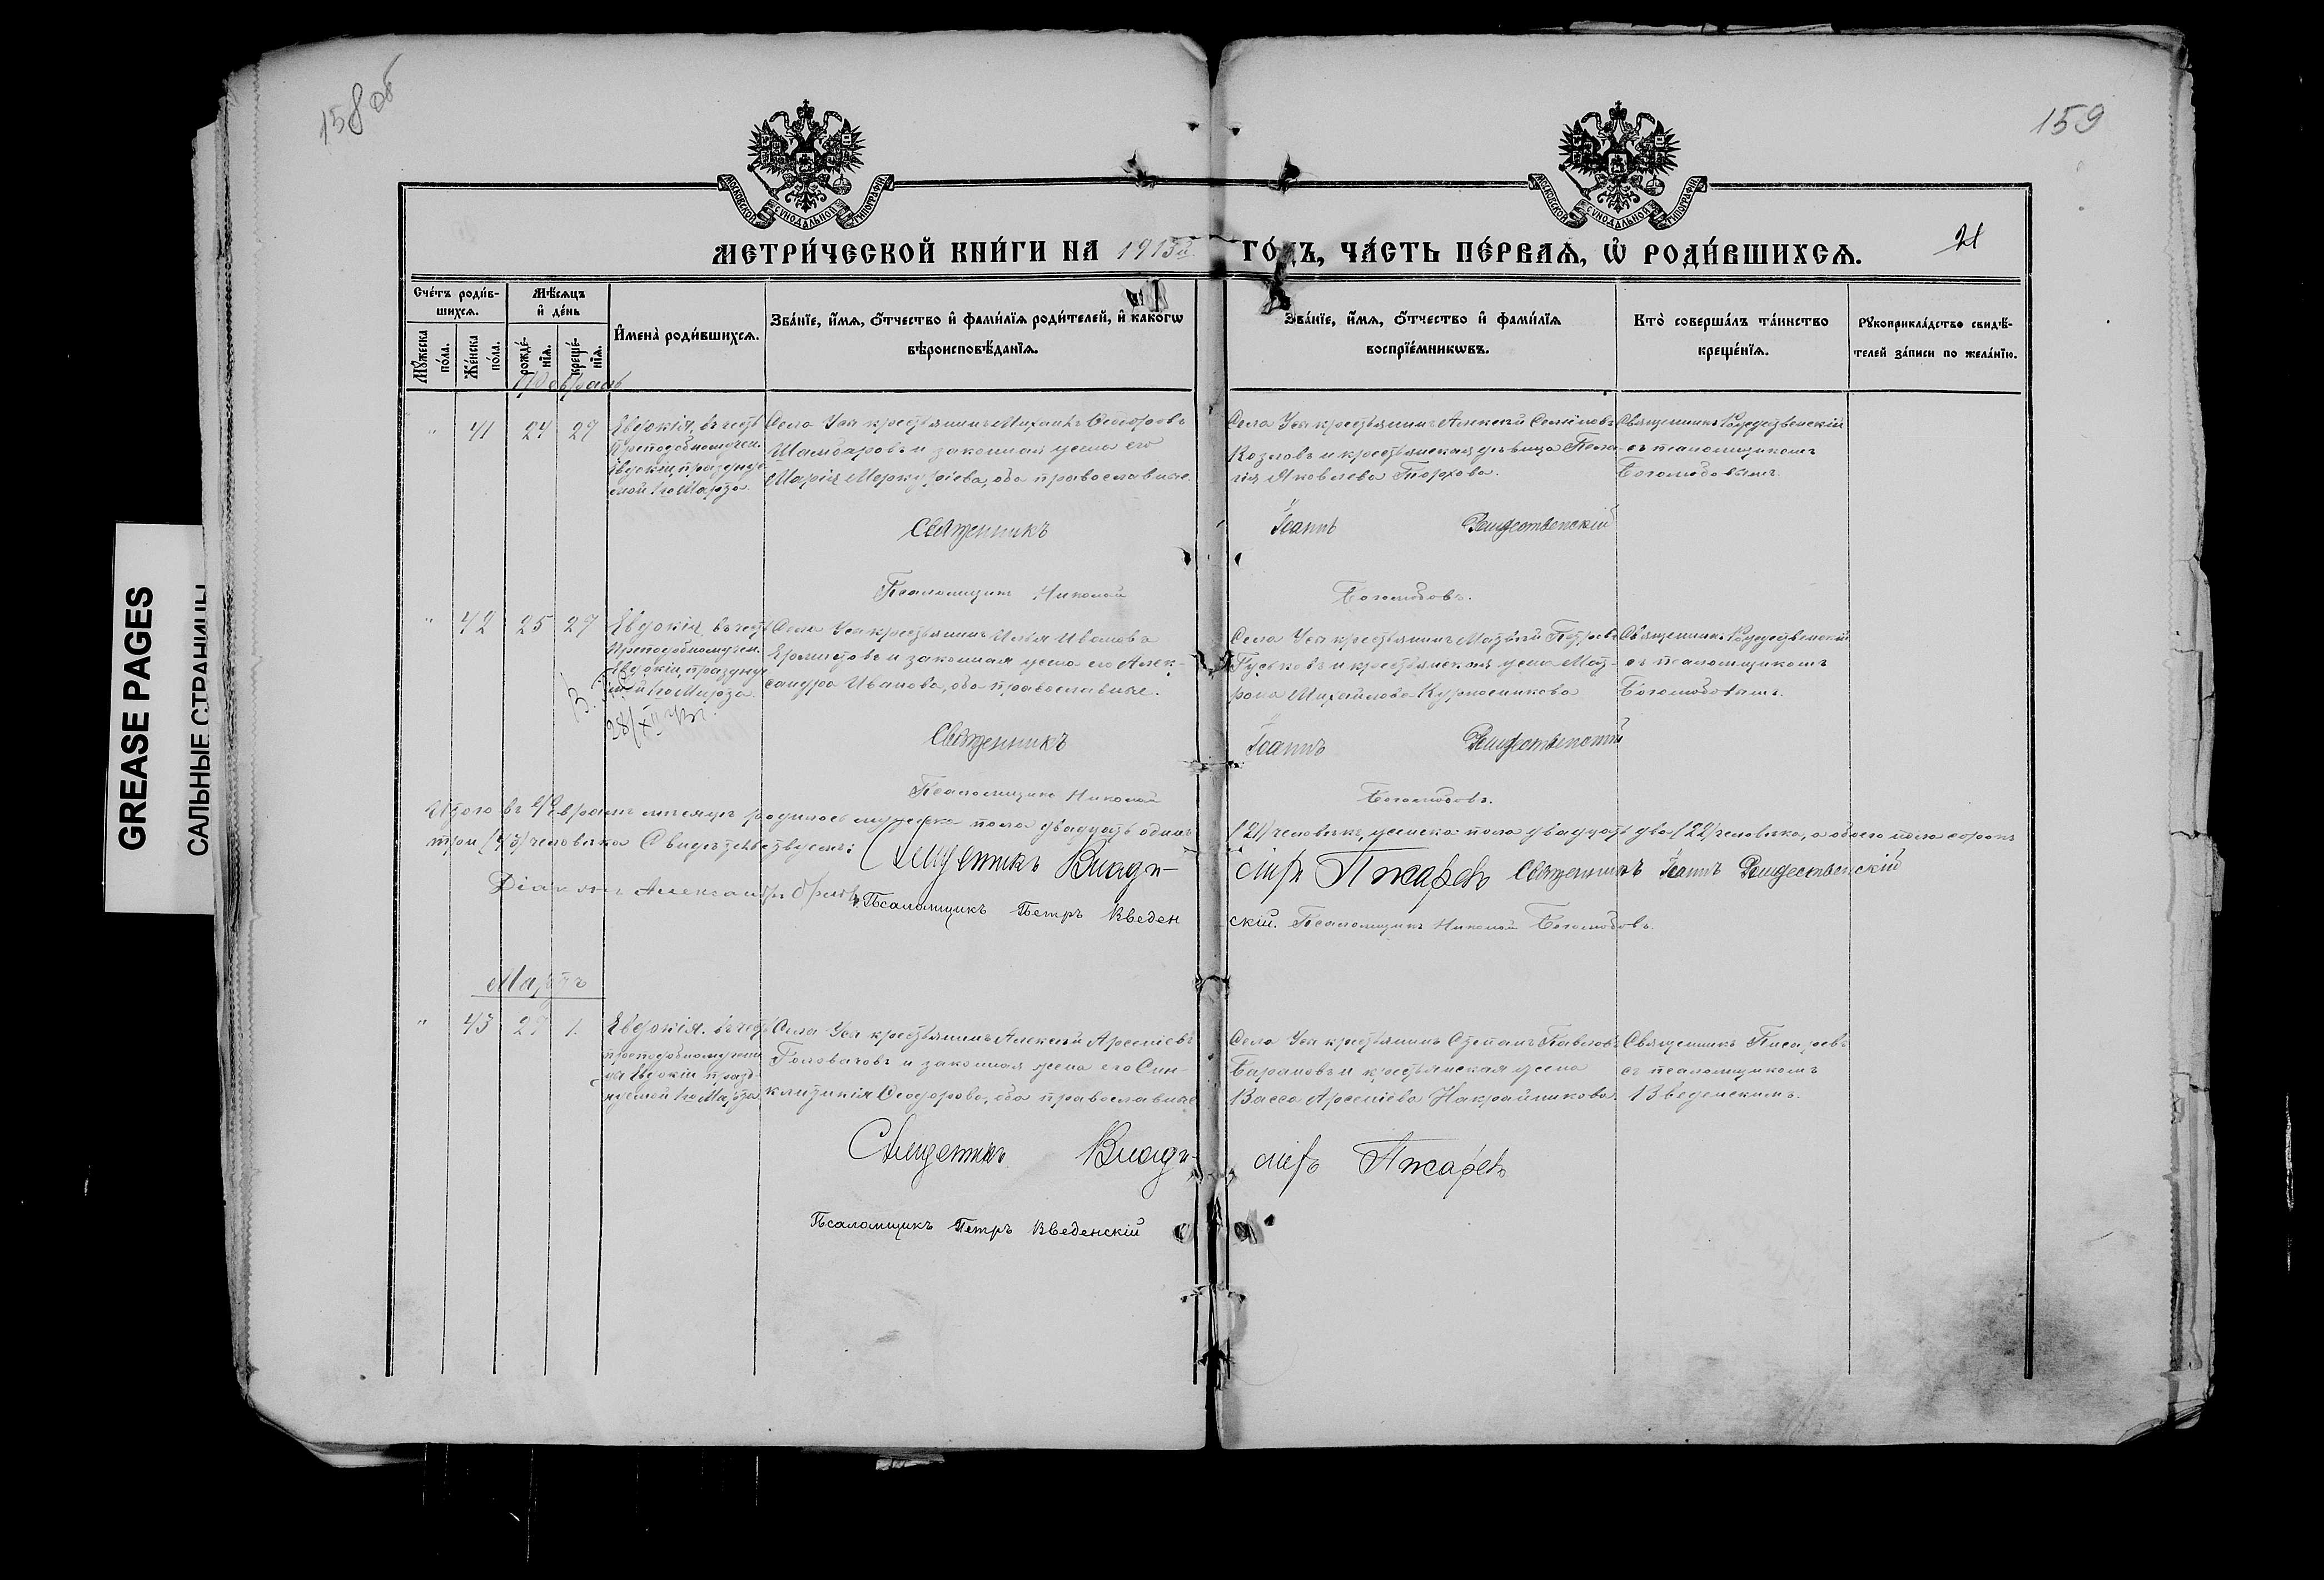 158 об
159
МОСКОВСКОЙ СУНОДАЛЬНОЙ ТИПОГРАФІИ
МОСКОВСКОЙ СУНОДАЛЬНОЙ ТИПОГРАФІИ
МЕТРИ́ЧЕСКОЙ КНИ́ГИ НА 1913й ГО́ДЪ, ЧА́СТЬ ПЕ́РВАѦ, Ѿ РОДИ́ВШИХСѦ.
21
Сче́тъ роди́в-
шихсѧ.
Мꙋжеска по́ла.
Же́нска по́ла.
Мѣ́сѧцъ
и҆ де́нь
рожде́-
нїѧ.
креще́-
нїѧ.
И҆мена̀ роди́вшихсѧ.
Зва́нїе, и҆́мѧ, ѻ҆́тчество и҆ фами́лїѧ роди́телей, и҆ како́гѡ
вѣроисповѣ́данїѧ.
Зва́нїе, и҆́мѧ, ѻ҆́тчество и҆ фами́лїѧ
воспрїе́мникѡвъ.
Кто̀ соверша́лъ та́инство
креще́нїѧ.
Рꙋкоприкла́дство свидѣ́-
телей за́писи по жела́нїю.
Февраль
" 41 24 27
Евдокія, въ честь
Преподобномучен.
Евдокіи, празднуе-
мой 1го Марта.
Села Усп крестьянинъ Михаилъ Ѳеодоровъ
Шамбаровъ и законная жена его
Марія Меркуріева, оба православные.
Села Усп крестьянинъ Алексѣй Семіоновъ
Козловъ и крестьянская дѣвица Пела-
гія Яковлева Тюрхова.
Священникъ Рождественскій
съ псаломщикомъ
Боголюбовымъ.
Священникъ Іоаннъ Рождественскій
Псаломщикъ Николай Боголюбовъ.
" 42 25 27
Евдокія, въ честь
Преподобномучен.
Евдокіи, празднуе-
мой 1го Марта.
Села Усп крестьянинъ Илья Ивановъ
и законная жена его Алек-
сандра Иванова, оба православные.
Села Усп крестьянинъ Матвѣй Петровъ
Гуськовъ и крестьянская жена Мат-
рона Михайлова Курносикова
Священникъ Рождественскій
съ псаломщикомъ
Боголюбовымъ.
28/XII
Священникъ Іоаннъ Рождественскій
Псаломщикъ Николай Боголюбовъ.
Итого въ Февралѣ мѣсяцѣ родилось мужеска пола двадцать одинъ (21) человѣкъ, женска пола двадцать два (22) человѣка, а обоего пола сорокъ
три (43) человѣка. Свидѣтельствуемъ: Священникъ Влади-миръ Писаревъ Священникъ Іоаннъ Рождественскій
Діаконъ Александръ Псаломщикъ Петръ Введенскій. Псаломщикъ Николай Боголюбовъ.
Мартъ
" 43 27 1.
Евдокія. въ честь
преподобномучени-
цы Евдокіи празд-
нуемой 1го Марта.
Села Усп крестьянинъ Алексѣй Арсеніевъ
Головачовъ и законная жена его Син-
клитикія Ѳеодорова, оба православные
Села Усп крестьянинъ Степанъ Павловъ
Барановъ и крестьянская жена
Васса Арсеніева Накрайникова.
Священникъ Писаревъ
съ псаломщикомъ
Введенскимъ.
Священникъ Влади-миръ Писаревъ
Псаломщикъ Петръ Введенскій
GREASE PAGES
САЛЬНЫЕ СТРАНИЦЫ